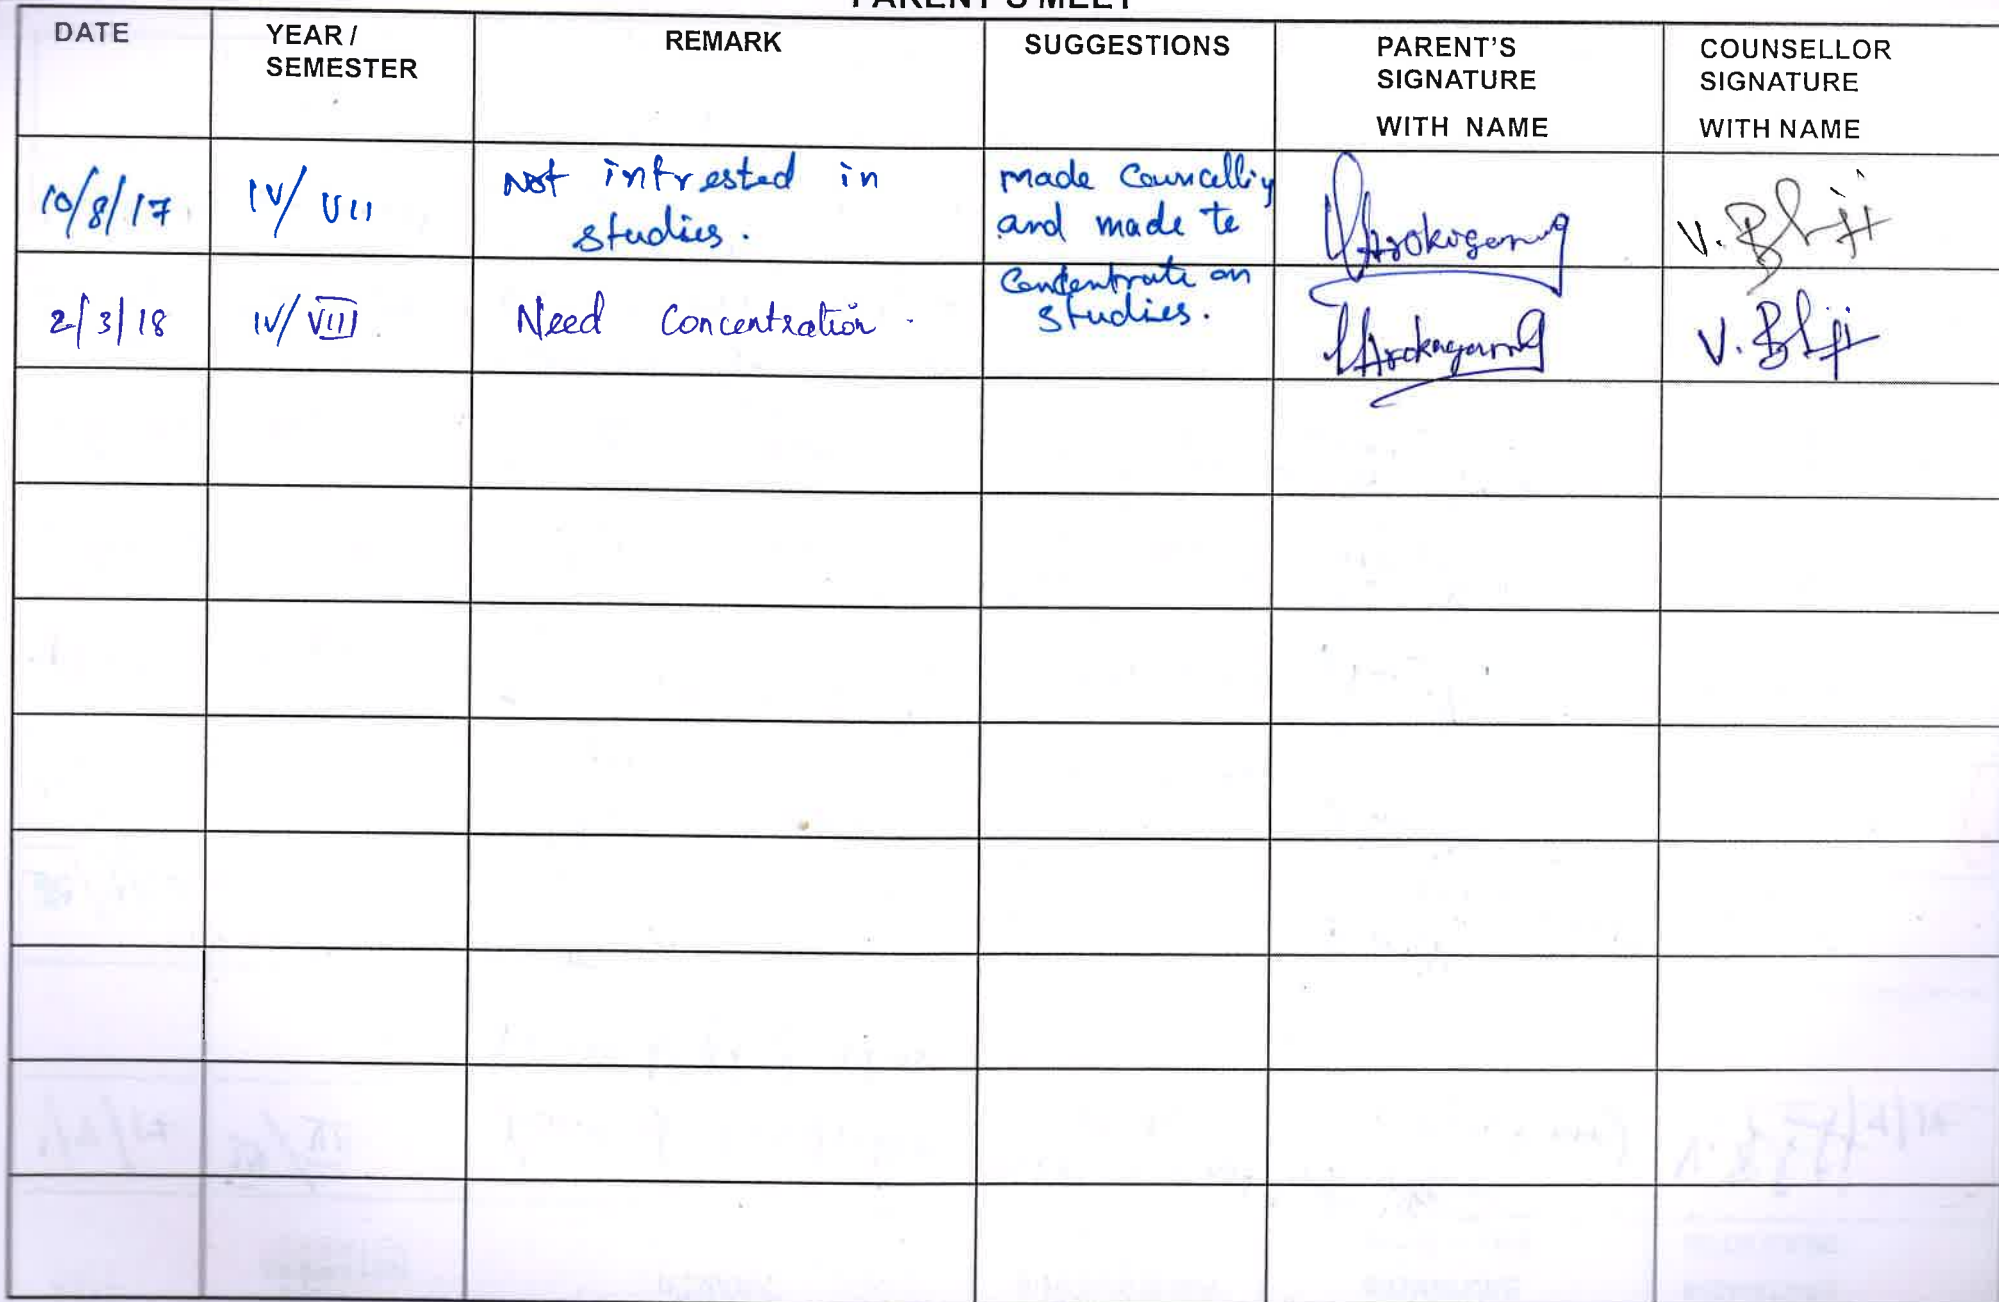 PARENT'S MEET
DATE
YEAR /
SEMESTER
REMARK
SUGGESTIONS
PARENT'S
SIGNATURE
WITH NAME
COUNSELLOR
SIGNATURE
WITH NAME
10/8/17
IV/ VII
Not intrested in
studies.
made Councelling
and made to
Concentrate on
studies.
2/3/18
IV/ VIII
Need Concentration.
V.
V.